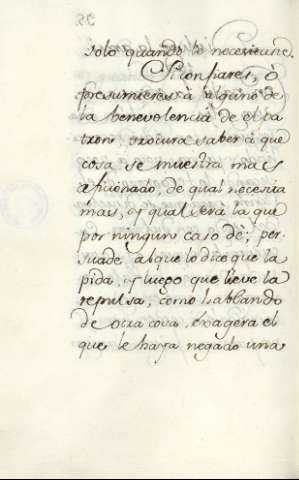 38
solo quando lo necesitare.
Si confiares, ó
presumieres à alguno de
la benevolencia de el pa
tron, procura saber à que
cosa se muestra mas
aficionado, de qual necesita
mas, y qual será la que
por ningun caso dè; per-
suade, à que lo dice que la
pida, y luego que lleve la
repulsa, como hablando
de otra cosa, exagera el
que le haya negado una